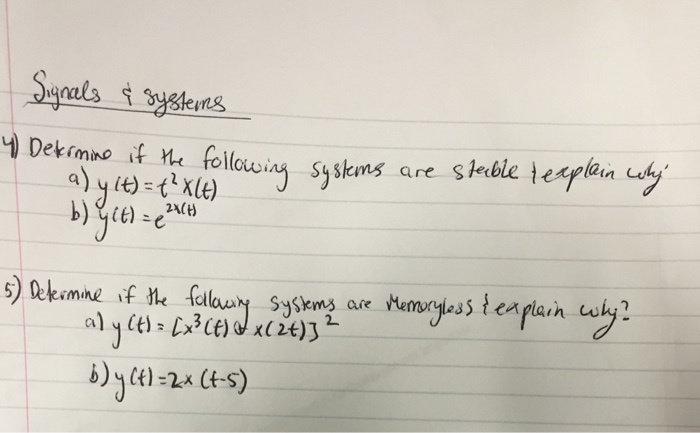 Signals & systems
4) Determine if the following systems are stable & explain why
a) y(t) = t² x(t)
b) y(t) = e^{2x(t)}
5) Determine if the following systems are Memoryless & explain why?
a) y(t) = [x³(t) x(2t)]²
b) y(t) = 2x (t-5)